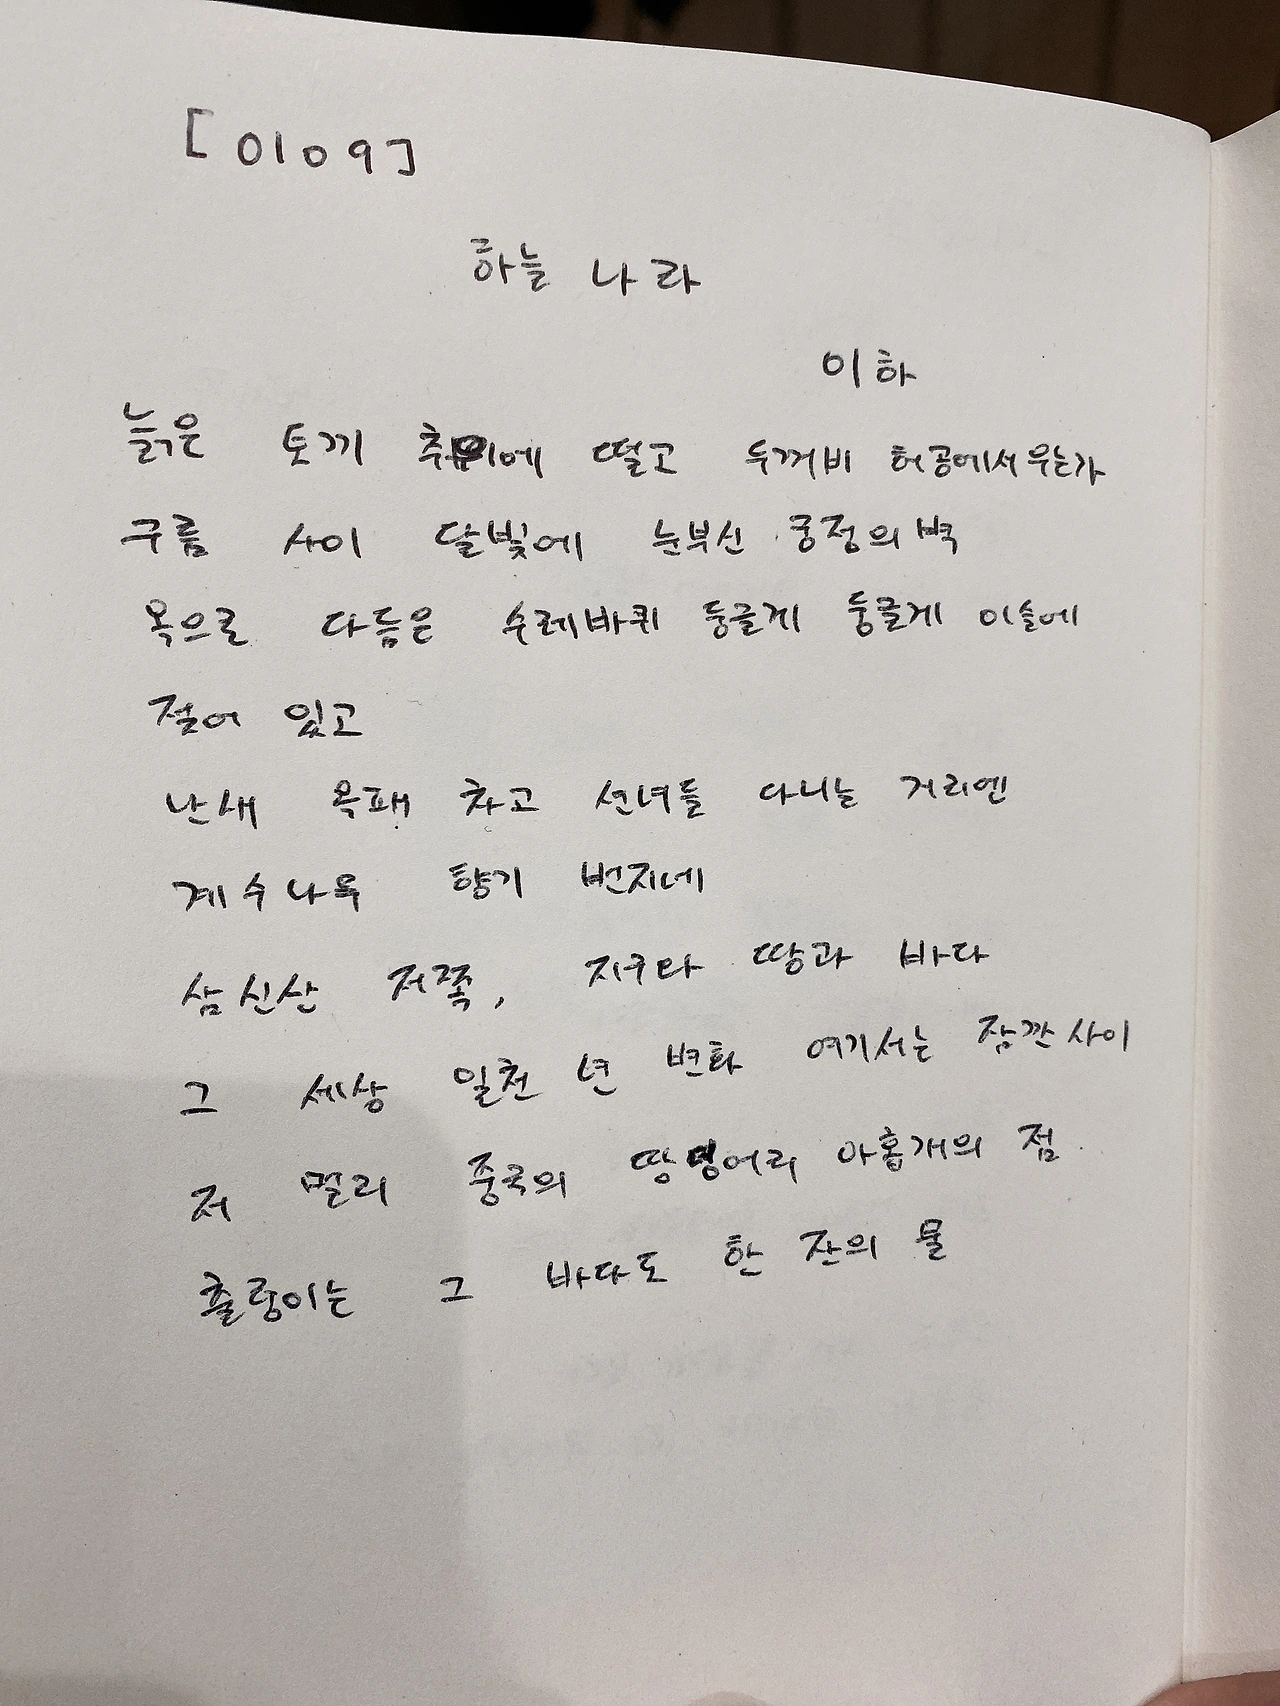 [0109]
하늘 나라
이하
늙은 토끼 추위에 떨고 두꺼비 허공에서 우는가
구름 사이 달빛에 눈부신 궁정의 벽
옥으로 다듬은 수레바퀴 둥글게 둥글게 이슬에
젖어 있고
난새 옥패 차고 선녀들 다니는 거리엔
계수나무 향기 번지네
삼신산 저쪽, 지구라 땅과 바다
그 세상 일천 년 변화 여기서는 잠깐 사이
저 멀리 중국의 땅덩어리 아홉개의 점
출렁이는 그 바다도 한 잔의 물